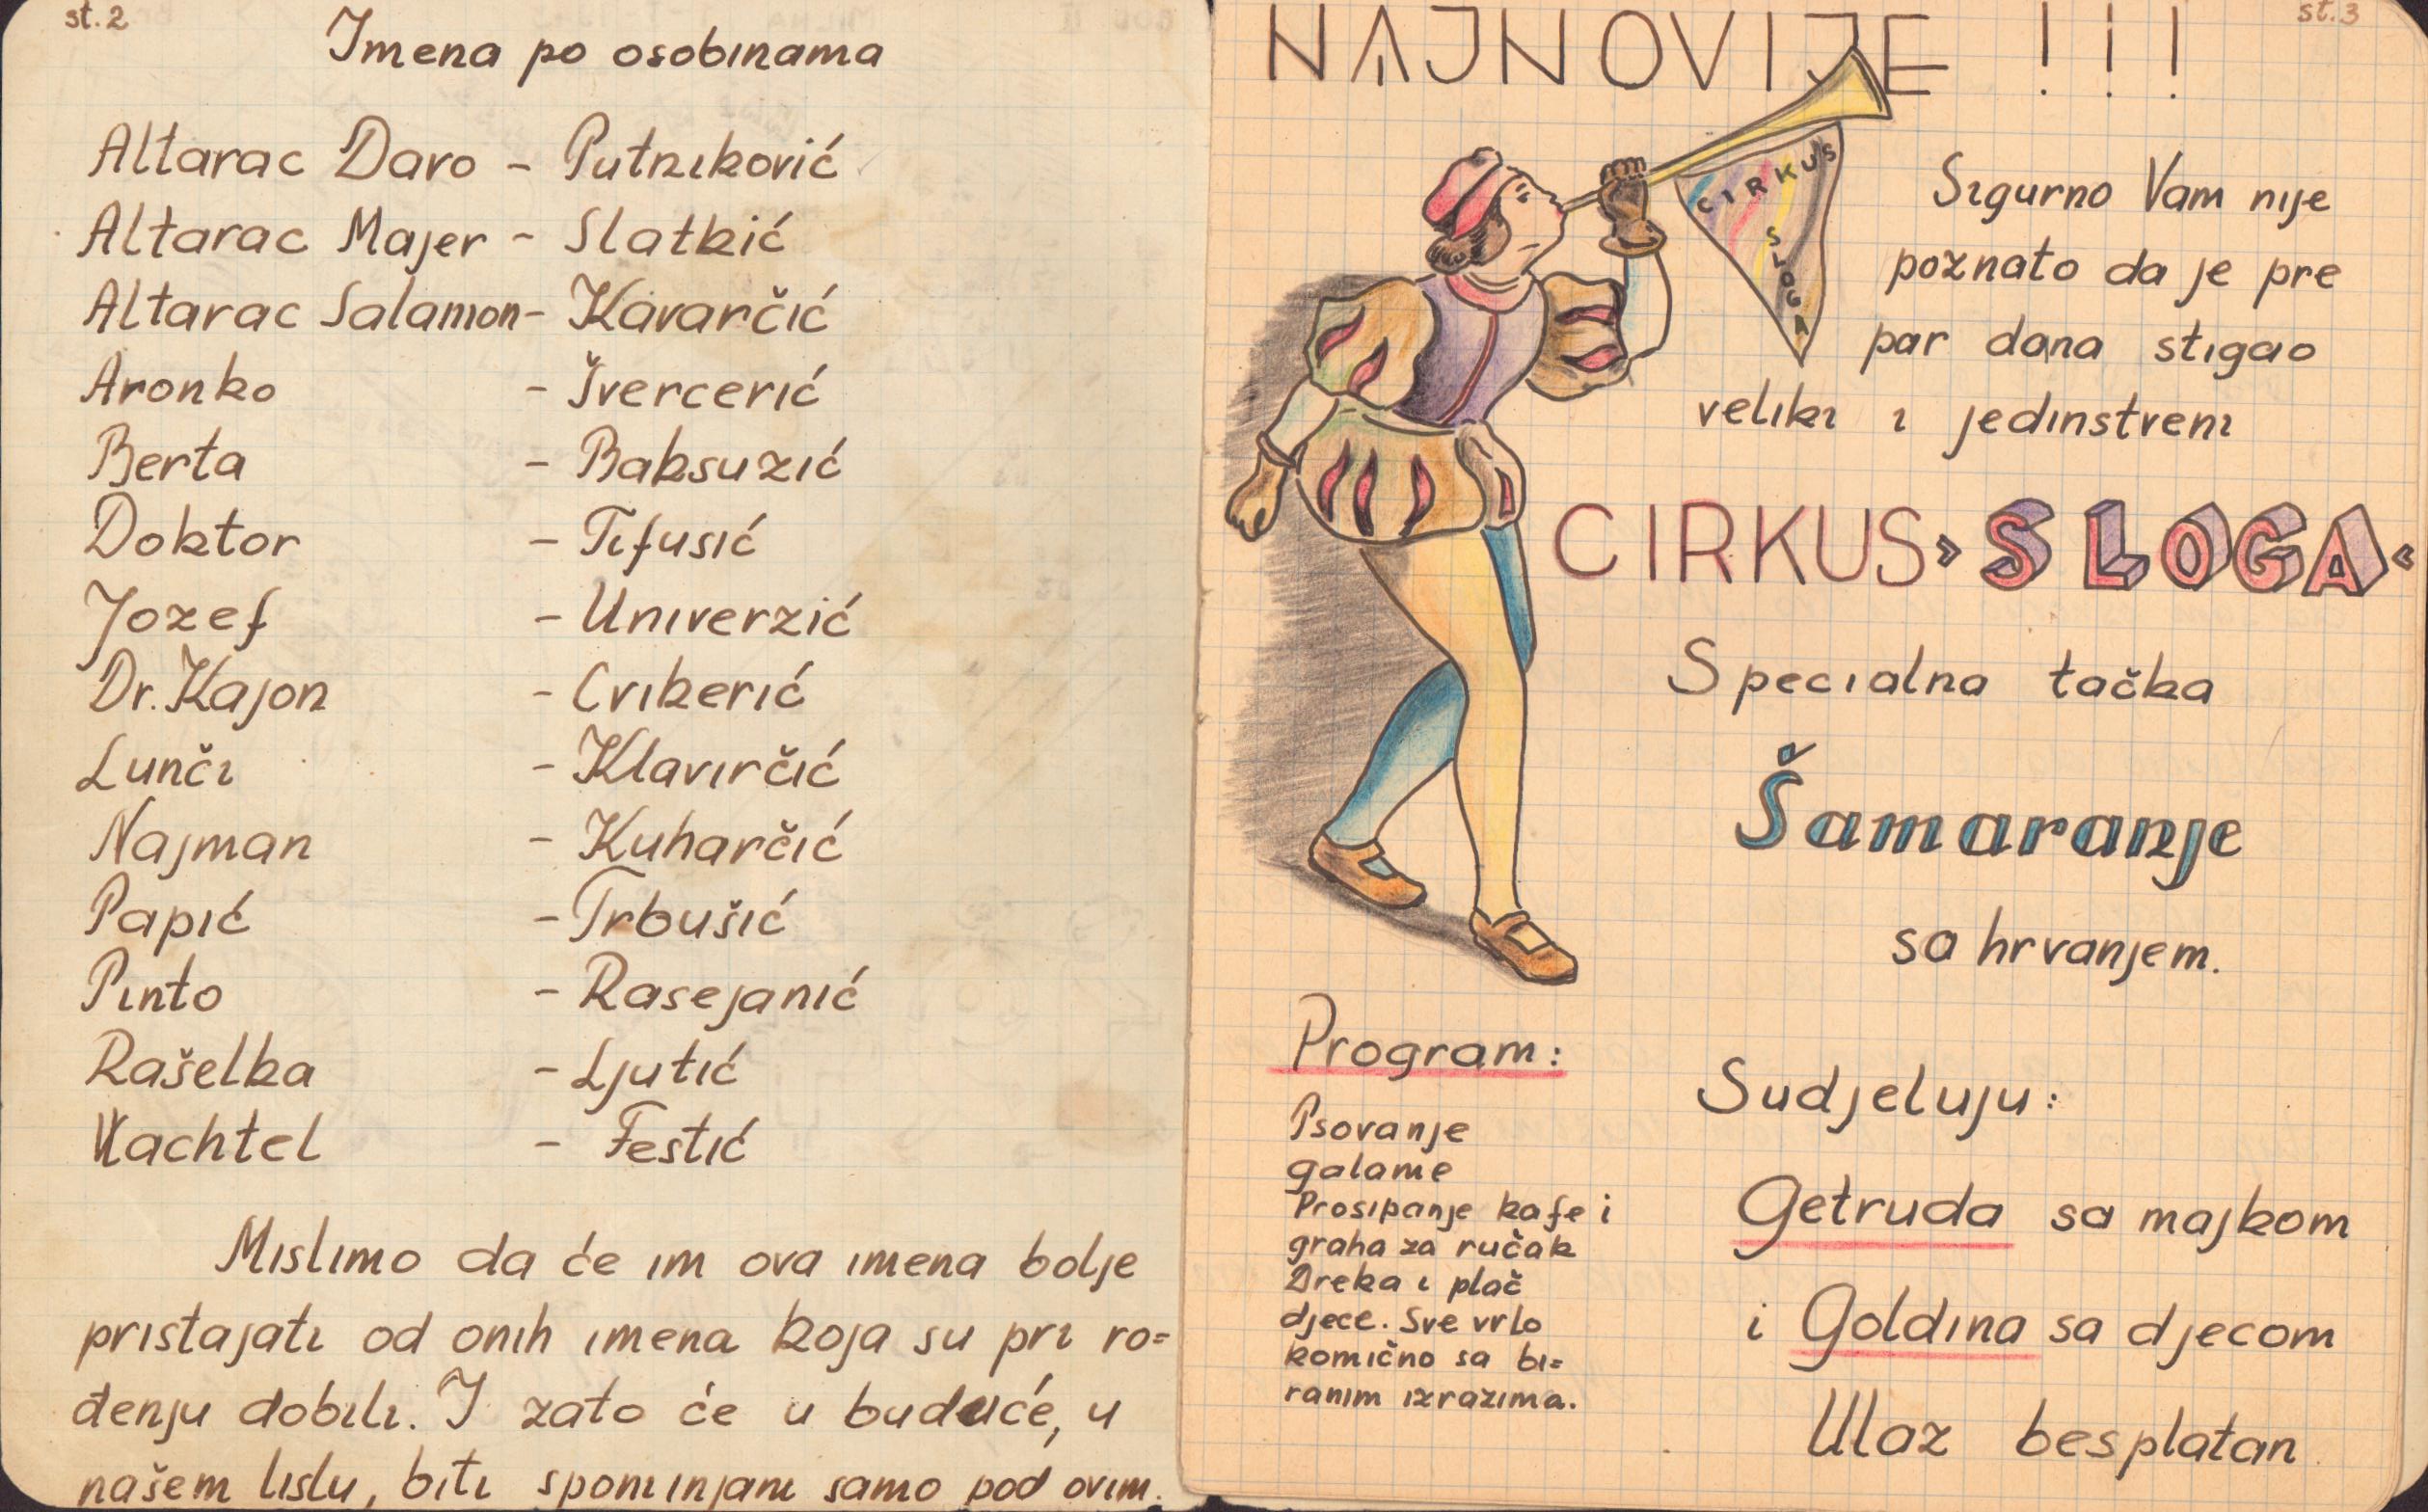 st. 2
Imena po osobinama
Altarac Davo - Putniković
Altarac Majer - Slatkić
Altarac Salamon - Kavarčić
Aronko - Švercerić
Berta - Baksuzić
Doktor - Tifusić
Jozef - Univerzić
Dr. Kajon - Cvikerić
Lunči - Klavirčić
Najman - Kuharčić
Papić - Trbušić
Pinto - Rasejanić
Rašelka - Ljutić
Wachtel - Festić
Mislimo da će im ova imena bolje
pristajati od onih imena koja su pri ro=
đenju dobili. I zato će u buduće, u
našem listu, biti spominjani samo pod ovim.
st. 3
NAJNOVIJE !!!
CIRKUS
SLOGA
Sigurno Vam nije
poznato da je pre
par dana stigao
veliki i jedinstveni
CIRKUS »SLOGA«
Specialna tačka
Šamaranje
sa hrvanjem.
Program:
Psovanje
galame
Prosipanje kafe i
graha za ručak
Dreka i plač
djece. Sve vrlo
komično sa bi=
ranim izrazima.
Sudjeluju:
Getruda sa majkom
i Goldina sa djecom
Ulaz besplatan